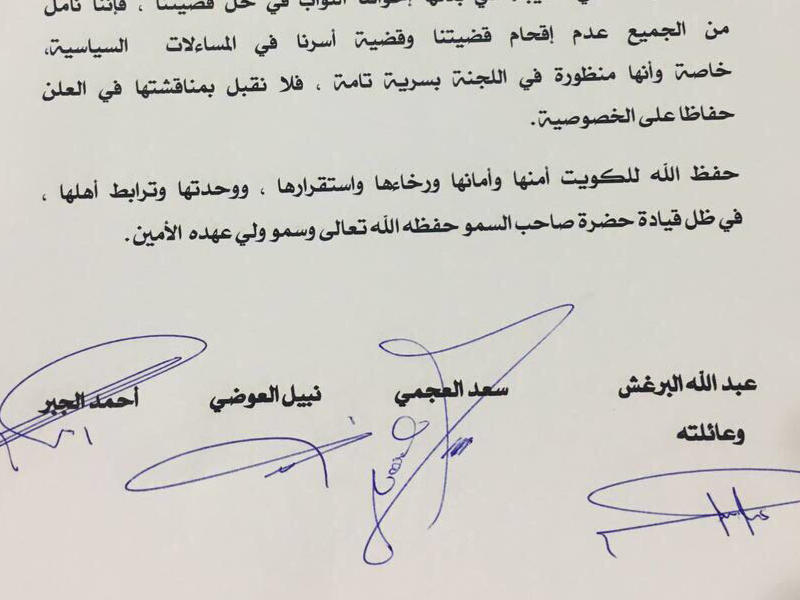 إخواننا النواب في حل قضيتنا ، فإننا نأمل
من الجميع عدم إقحام قضيتنا وقضية أسرنا في المساءلات السياسية،
خاصة وأنها منظورة في اللجنة بسرية تامة ، فلا نقبل بمناقشتها في العلن
حفاظا على الخصوصية.
حفظ الله للكويت أمنها وأمانها ورخاءها واستقرارها ، ووحدتها وترابط أهلها ،
في ظل قيادة حضرة صاحب السمو حفظه الله تعالى وسمو ولي عهده الأمين.
عبد الله البرغش سعد العجمي نبيل العوضي أحمد الجبر
وعائلته